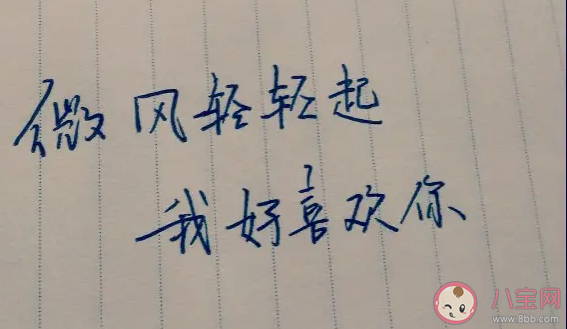 微风轻轻起
我好喜欢你
八宝网
www.8bb.com